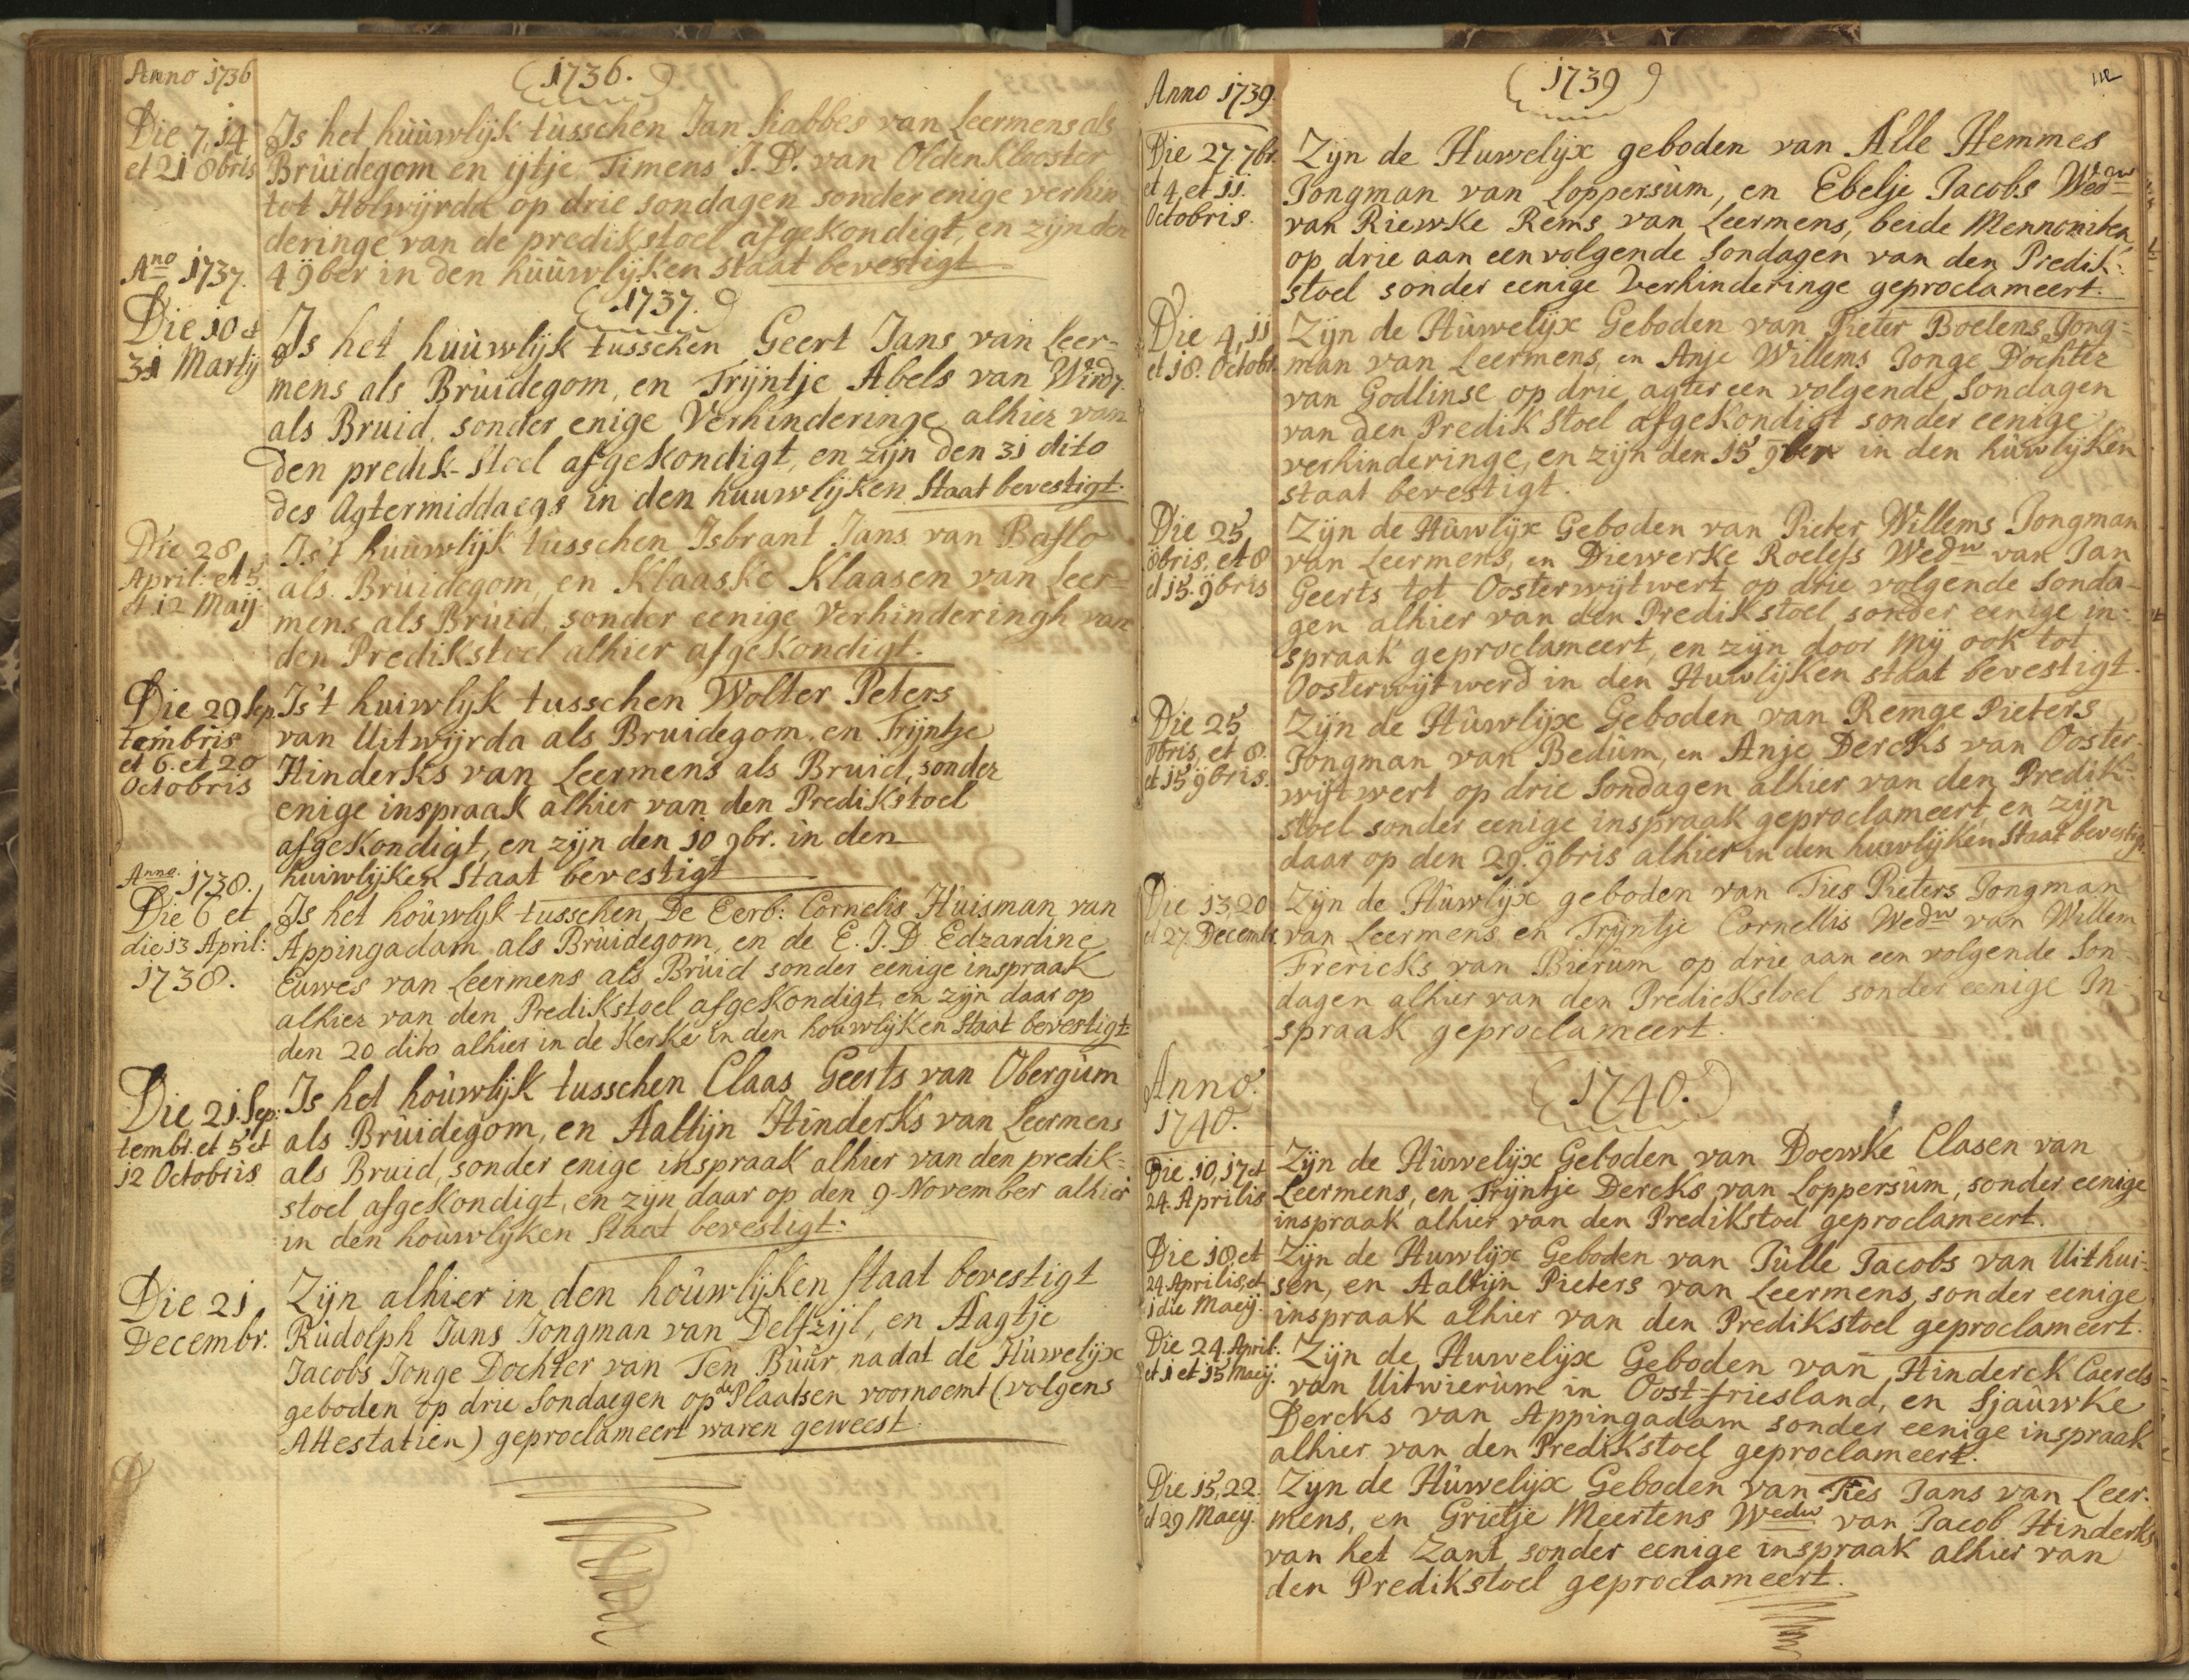 Anno 1736
(1736.)
Die 7, 14
et 21 8bris
Is het hùùwlijk tùsschen Jan Siabbes van Leermens als
Brùidegom en ijtje Timens J. D. van Oldenklooster
tot Holwijrda op drie sondagen sonder enige verhin
deringe van de predikstoel afgekondigt, en zijn den
4 9ber in den hùùwlijken staat bevestigt
Ano 1737.
(1737.)
Die 10 et
31 Martij
Is het huùwlijk tusschen Geert Jans van Leer-
mens als Brùidegom, en Trijntje Abels van
als Bruid, sonder enige Verhinderinge alhier van
den predik-stoel afgekondigt, en zijn den 31 dito
des Agtermiddaegs in den huuwlijken Staat bevestigt.
Die 28
April: et 5
et 12 Maij
Is't hùùwlijk tùsschen Isbrant Jans van Baflo
als Brùidegom, en Klaaske Klaasen van Leer-
mens als Brùid, sonder eenige Verhinderingh van
den Predikstoel alhier afgekondigt.
Die 29 Sep
tembris
et 6. et 20
Octobris
Is't huiwlijk tusschen Wolter Peters
van Uitwijrda als Bruidegom, en Trijntje
Hinderks van Leermens als Bruid, sonder
enige inspraak alhier van den Predikstoel
afgekondigt, en zijn den 10 9br. in den
huiwlijken Staat bevestigt
Anno. 1738.
Die 6 et
die 13 April:
1738.
Is het hoùwlijk tusschen De Eerb: Cornelis Huisman van
Appingadam als Brùidegom, en de E. J. D. Edzardine
Euwes van Leermens als Brùid sonder eenige inspraak
alhier van den Predikstoel afgekondigt, en zijn daar op
den 20 dito alhier in de Kerke in den houwlijken Staat bevestigt
Die 21. Sep:
tembr. et 5 et
12 Octobris
Is het hoùwlijk tusschen Claas Geerts van Obergùm
als Brùidegom, en Aaltijn Hinderks van Leermens
als Bruid, sonder enige inspraak alhier van den predik=
stoel afgekondigt, en zijn daar op den 9 November alhier
in den hoùwlijken Staat bevestigt:
Die 21
Decembr.
Zijn alhier in den hoùwlijken staat bevestigt
Rùdolph Jans Jongman van Delfzijl, en Aagtje
Jacobs Jonge Dochter van Ten Bùùr, nadat de Hùwelijx
geboden op drie Sondaegen op de Plaatsen voornoemt (volgens
Attestatien) geproclameert waren geweest
112
Anno 1739.
(1739)
Die 27. 7br.
et 4 et 11
Octobris.
Zijn de Huwelijx geboden van Alle Hemmes
Jongman van Loppersùm, en Ebelje Jacobs Wedw
van Riewke Rems van Leermens, beide Mennoniten,
op drie aan een volgende Sondagen van den Predik:
stoel sonder eenige Verhinderinge geproclameert.
Die 4, 11
et 18. Octobr.
Zijn de Hùwelijx Geboden van Pieter Boelens Jong=
man van Leermens, en Anje Willems Jonge Dochter
van Godlinse op drie agter een volgende Sondagen
van den Predik Stoel afgekondigt sonder eenige
verhinderinge, en zijn den 15 9ber in den hùwlijken
staat bevestigt.
Die 25
8bris, et 8
et 15. 9bris
Zijn de Hùwlijx Geboden van Pieter Willems Jongman
van Leermens, en Diewerke Roelefs Wedw van Jan
Geerts tot Oosterwijtwert op drie volgende Sonda-
gen alhier van den Predikstoel sonder eenige in=
spraak geproclameert, en zijn door mij ook tot
Oosterwijtwerd in den Huwlijken staat bevestigt.
Die 25
8bris, et 8.
et 15 9bris.
Zijn de Hùwlijx Geboden van Remge Pieters
Jongman van Bedùm, en Anje Dercks van Ooster-
wijtwert op drie Sondagen alhier van den Predik=
stoel sonder eenige inspraak geproclameert, en zijn
daar op den 29. 9bris alhier in den huwlijken Staat bevestigt.
Die 13, 20
et 27. Decembr.
Zijn de Hùwlijx geboden van Ties Pieters Jongman
van Leermens en Trijntje Cornellis Wedw van Willem
Frericks van Bierùm op drie aan een volgende Son-
dagen alhier van den Predickstoel sonder eenige In-
spraak geproclameert.
Anno.
1740.
(1740.)
Die 10, 17 et
24. Aprilis
Zijn de Hùwelijx Geboden van Doewke Clasen van
Leermens, en Trijntje Dercks van Loppersùm, sonder eenige
inspraak alhier van den Predikstoel geproclameert.
Die 10 et
24. Aprilis, et
1 die Maeij.
Zijn de Huwlijx Geboden van Jùlle Jacobs van Uithui=
sen, en Aaltijn Pieters van Leermens, sonder eenige
inspraak alhier van den Predikstoel geproclameert.
Die 24. April:
et 1 et 15 Maeij.
Zijn de Huwelijx Geboden van Hinderck Caerels
van Uitwierùm in Oost=friesland, en Sjaùwke
Dercks van Appingadam sonder eenige inspraak
alhier van den Predikstoel geproclameert.
Die 15, 22.
et 29 Maeij.
Zijn de Hùwelijx Geboden van Ties Jans van Leer.
mens, en Grietje Meertens Wedw van Jacob Hinderks
van het Zant sonder eenige inspraak alhier van
den Predikstoel geproclameert.